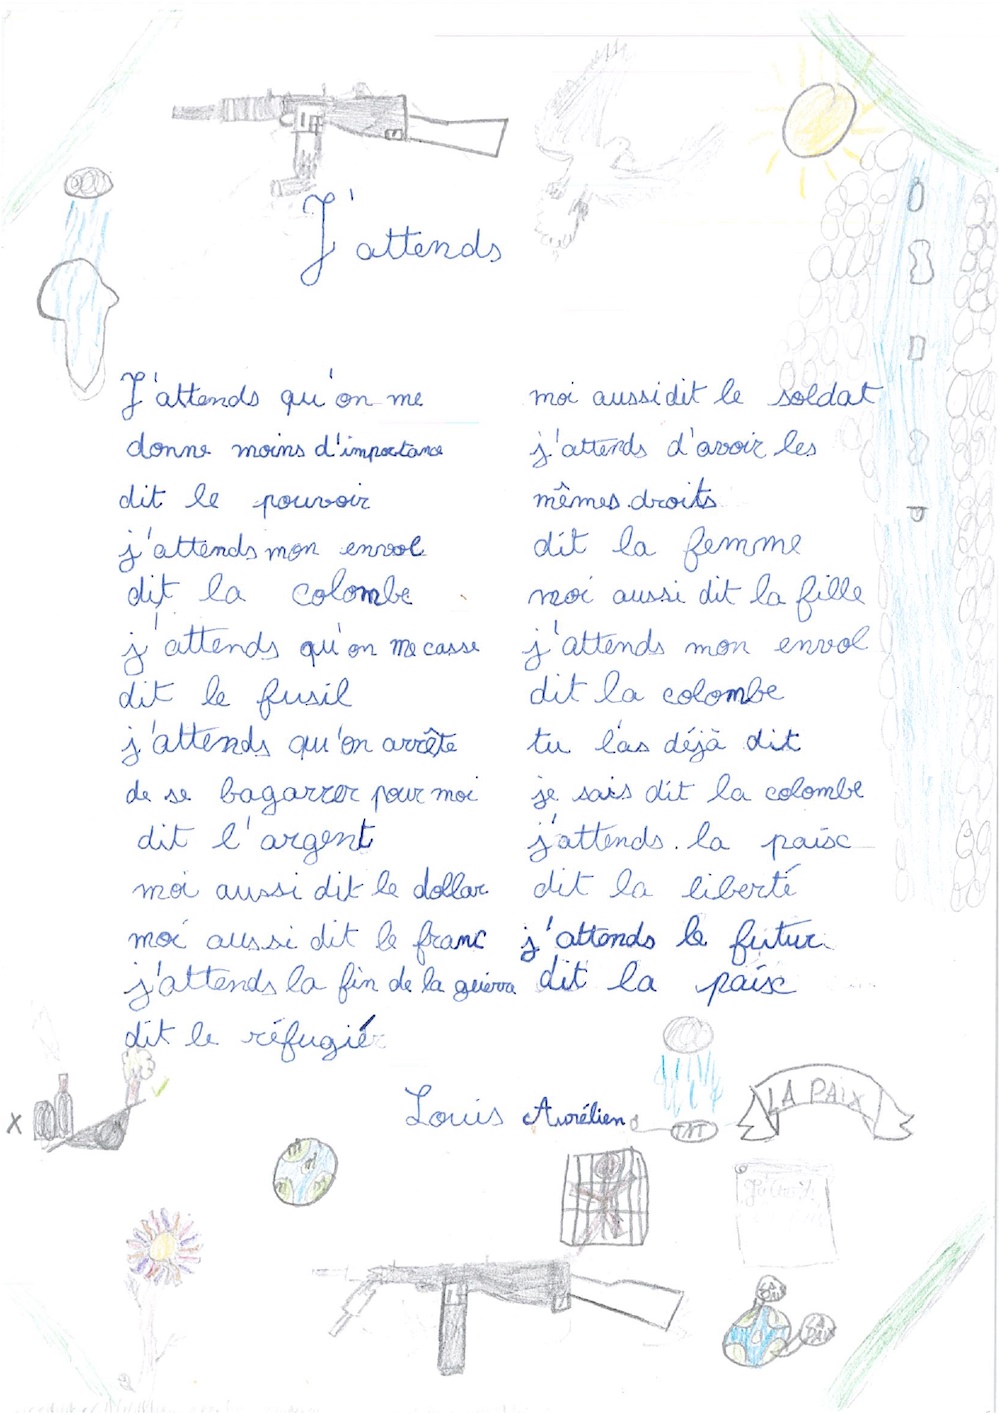 J'attends
J'attends qu'on me
donne moins d'importance
dit le pouvoir
j'attends mon envol
dit la colombe
j'attends qu'on me casse
dit le fusil
j'attends qu'on arrête
de se bagarrer pour moi
dit l'argent
moi aussi dit le dollar
moi aussi dit le franc
j'attends la fin de la guerra
dit le réfugiér
moi aussi dit le soldat
j'attends d'avoir les
mêmes droits
dit la femme
moi aussi dit la fille
j'attends mon envol
dit la colombe
tu l'as déjà dit
je sais dit la colombe
j'attends la paix
dit la liberté
j'attends le futur
dit la paix
Louis Aurélien
TNT
LA PAIX
X
LA PAIX